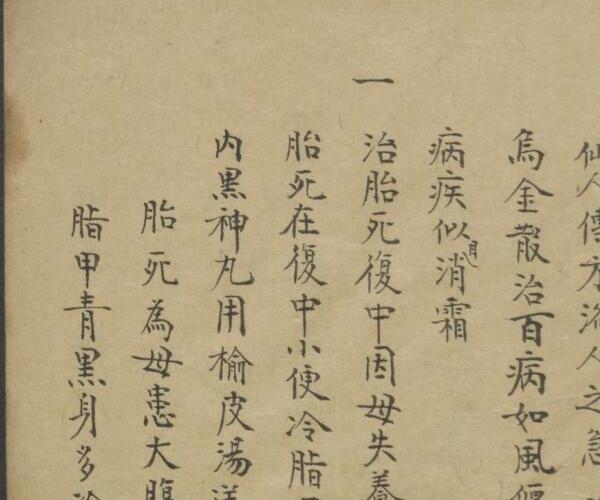 仙人傳方渁人之急
烏金散治百病如風便
病疾似消霜
一
治胎死復中因母失養
胎死在復中小便冷脂
内黒神丸用榆皮湯送
胎死為母患大腹
脂甲青黒身多冷